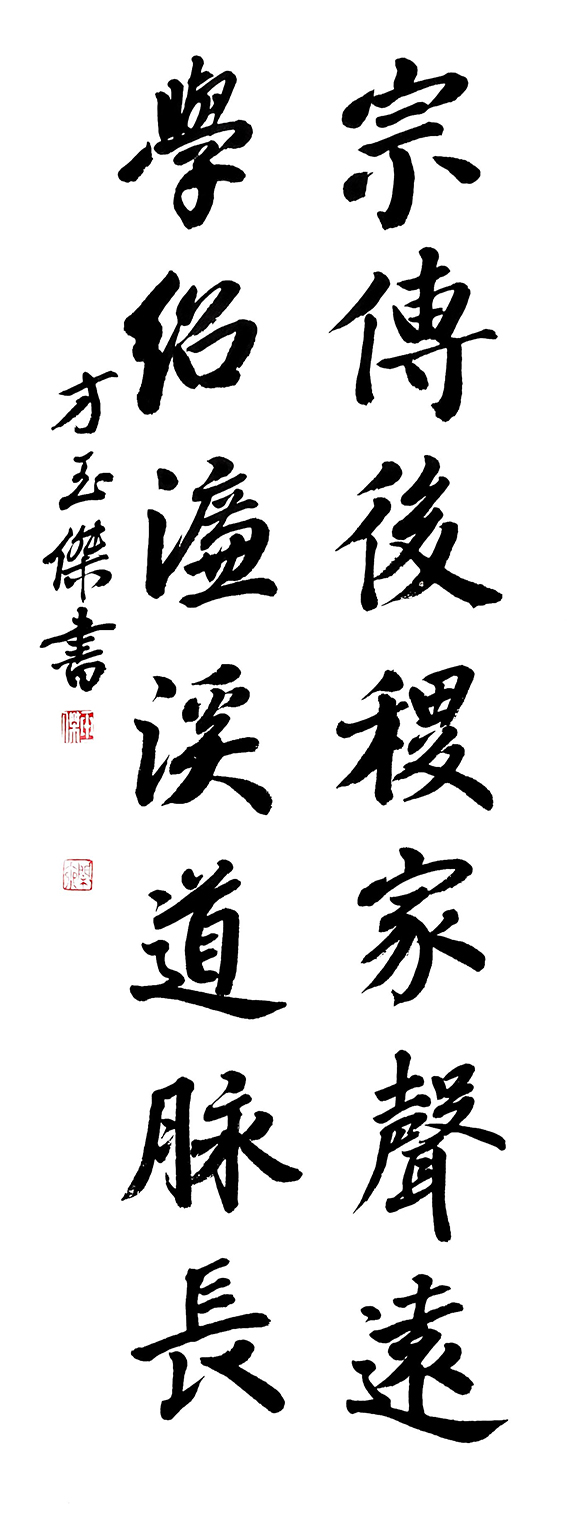 宗傳後稷家聲遠
學紹濂溪道脉長
方玉傑書
玉傑